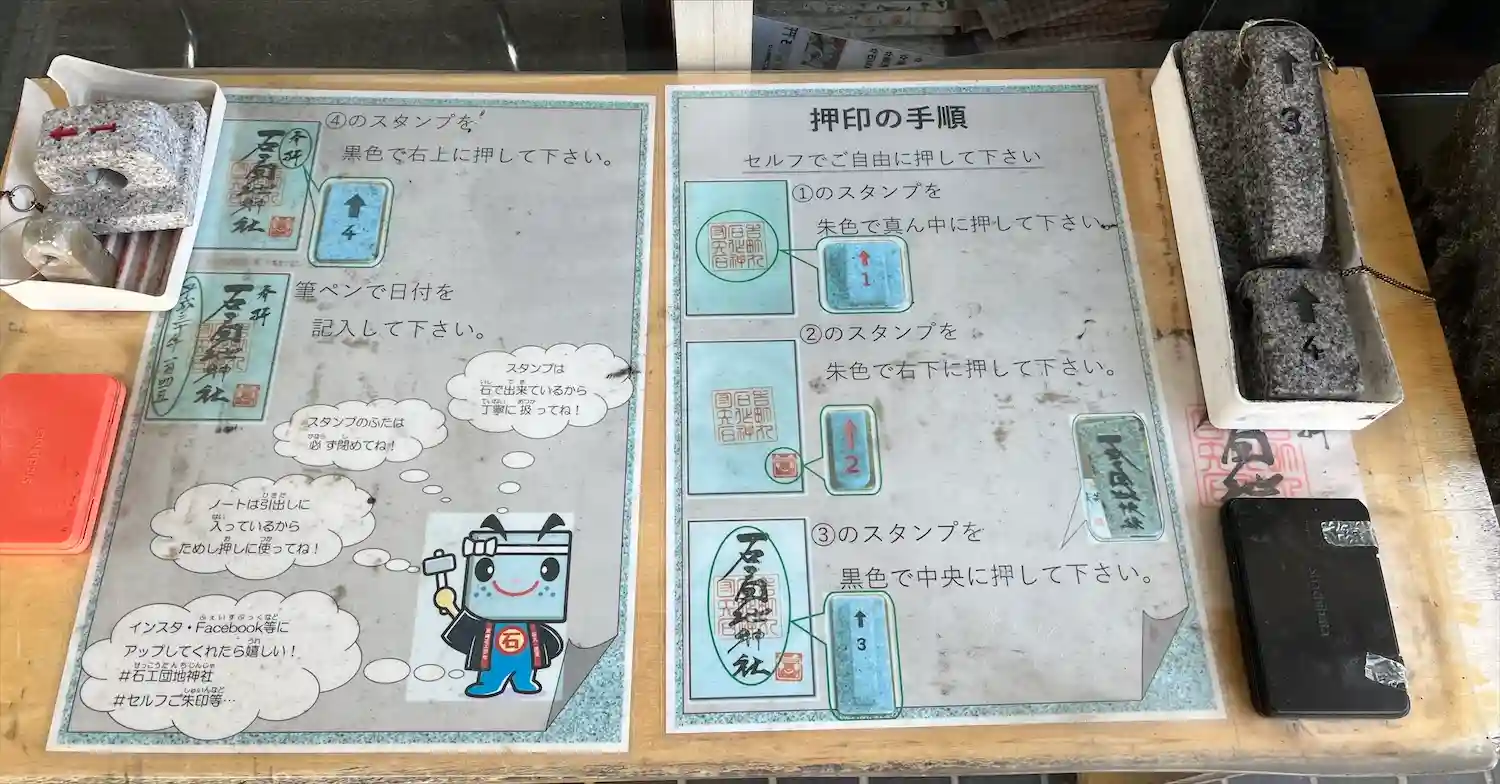 押印の手順
セルフでご自由に押して下さい
①のスタンプを
朱色で真ん中に押して下さい。
1
②のスタンプを
朱色で右下に押して下さい。
2
③のスタンプを
黒色で中央に押して下さい。
3
④のスタンプを
黒色で右上に押して下さい。
4
筆ペンで日付を
記入して下さい。
スタンプは
石で出来ているから
丁寧に扱ってね!
スタンプのふたは
必ず閉めてね!
ノートは引出しに
入っているから
ためし押しに使ってね!
インスタ・Facebook等に
アップしてくれたら嬉しい!
#石工団地神社
#セルフご朱印等…
石
3
4
shachihata
shachihata